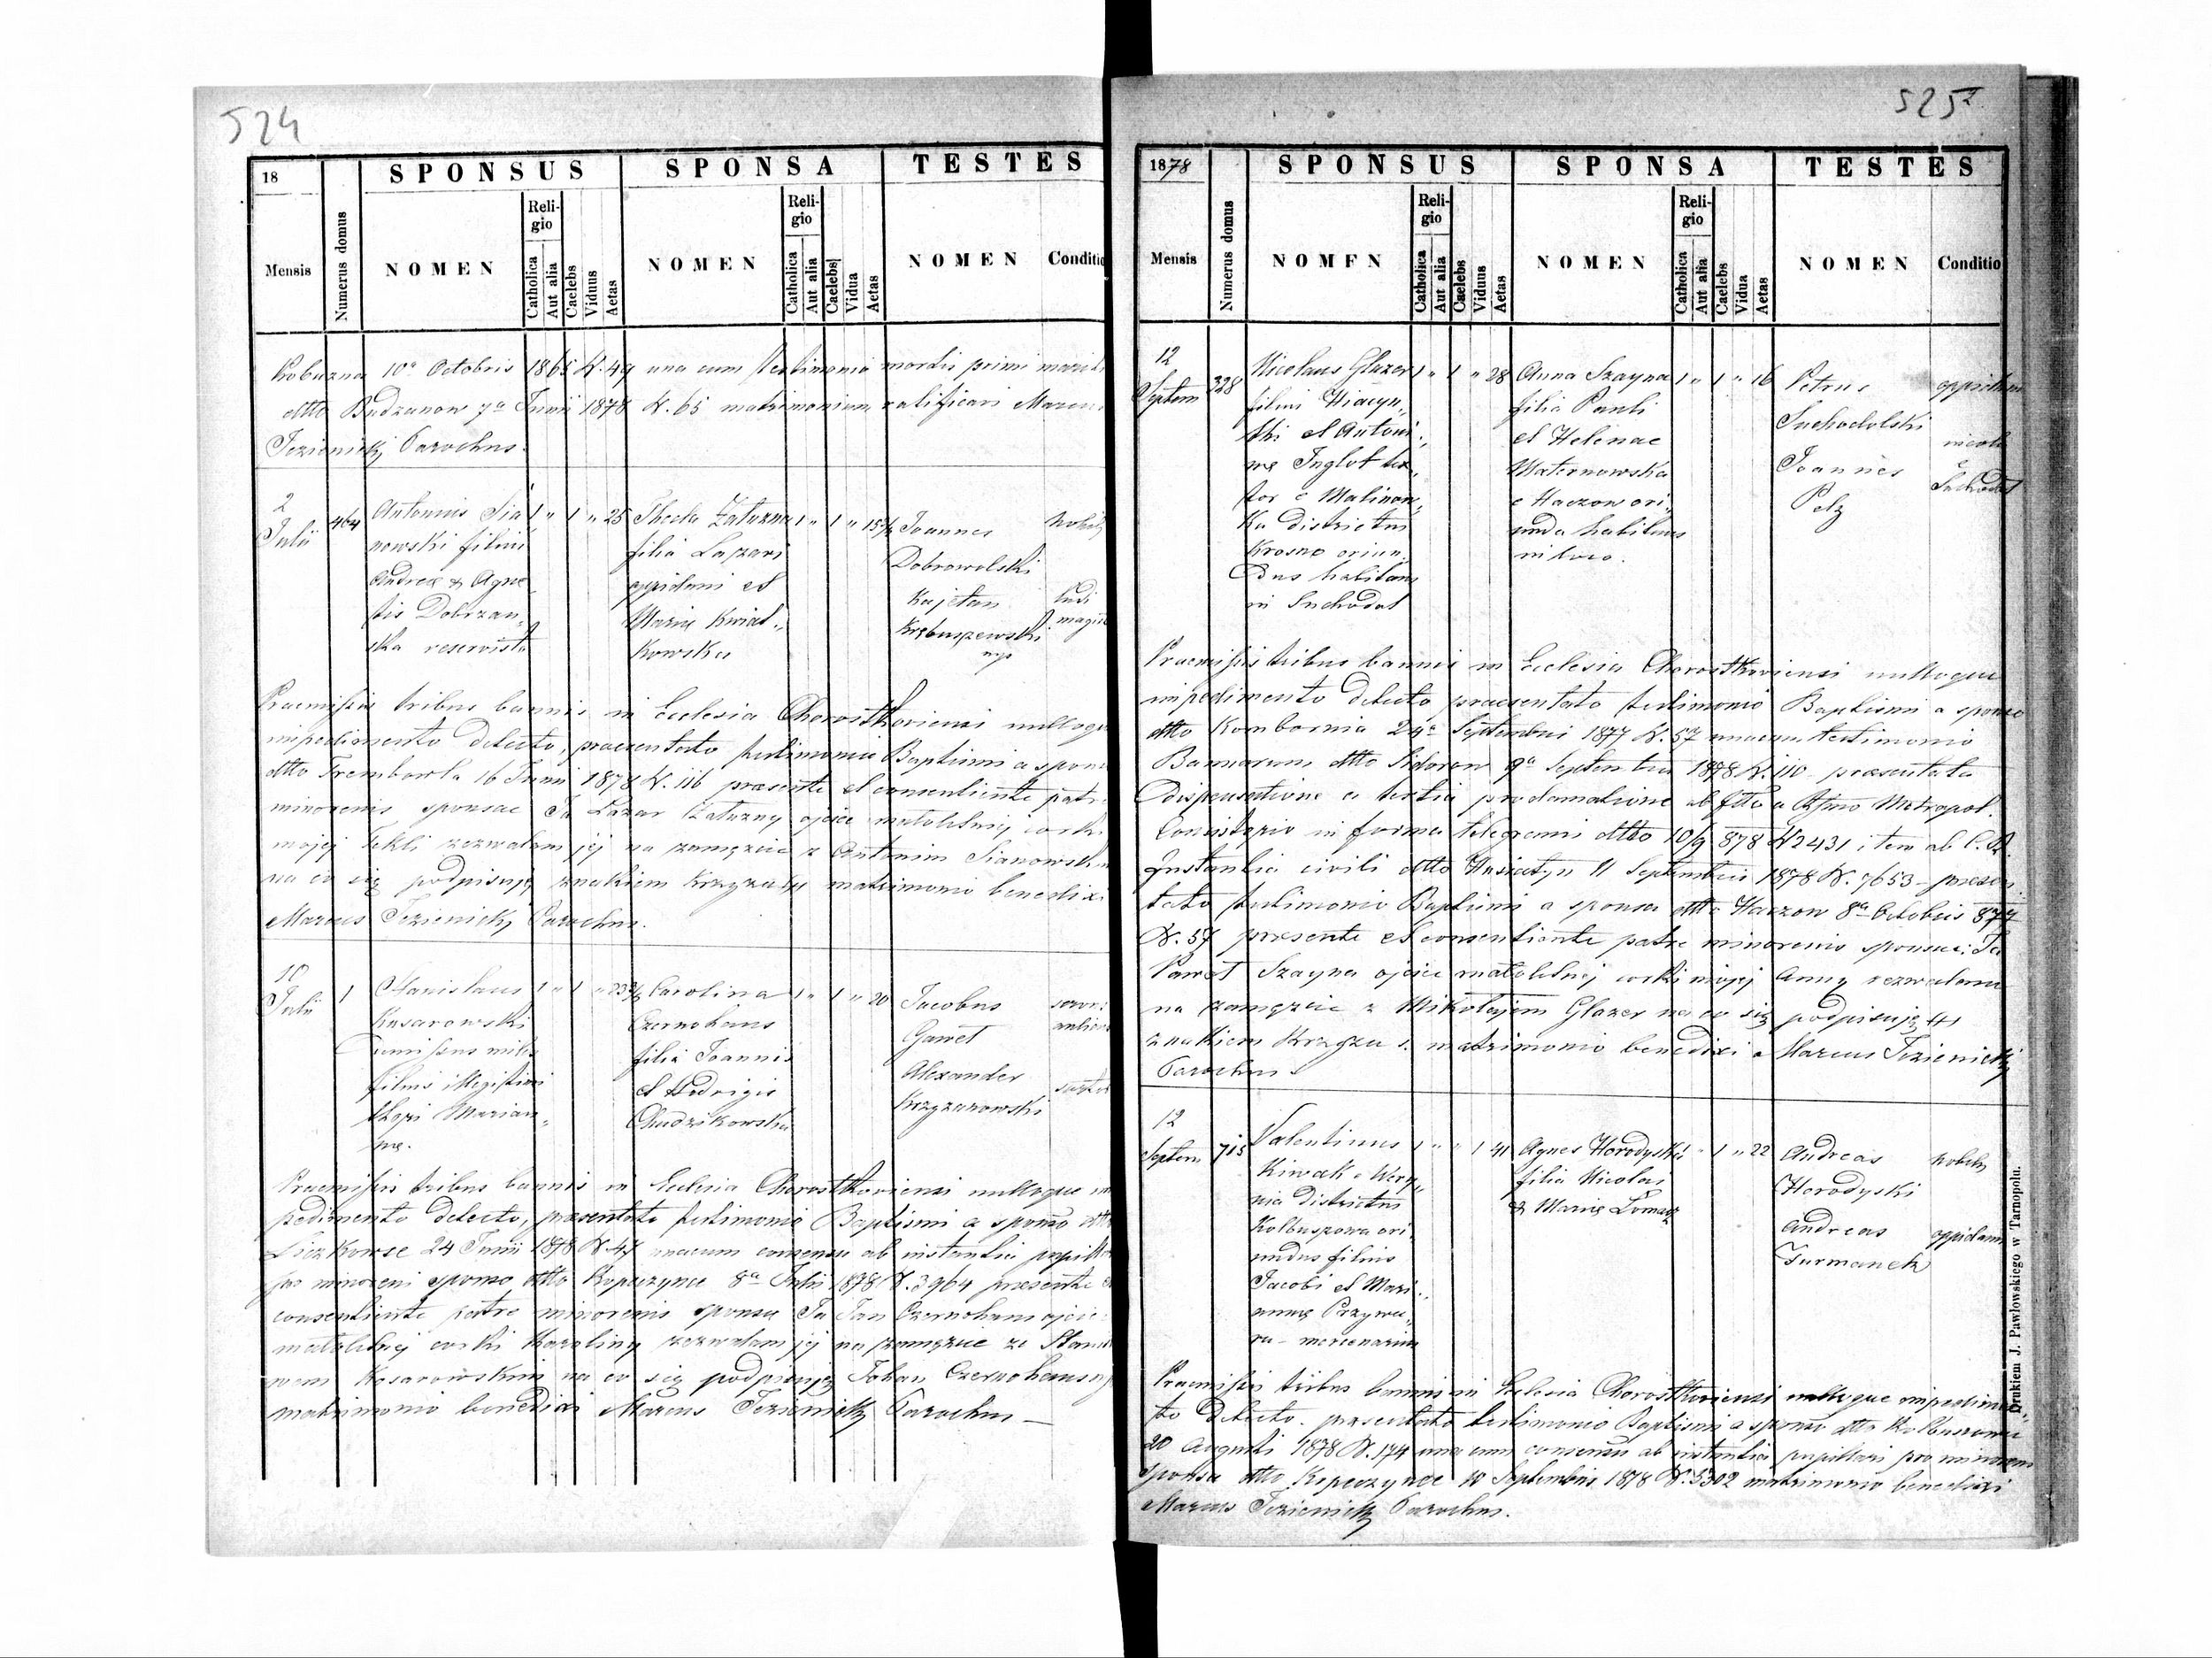 524
18
SPONSUS SPONSA TESTES
Mensis
Numerus domus
NOMEN
Religio
Catholica
Aut alia
Caelebs
Viduus
Aetas
NOMEN
Religio
Catholica
Aut alia
Caelebs
Vidua
Aetas
NOMEN Conditio
10a Octobris 1865 N. 49 una cum testimonio mortis primi mariti
dtto Budzanow 7a Junii 1878 N. 65 matrimonium ratificavi Marcus
Jezienicky Parochus.
2 Julii
464
Antonius Sia
nowski filius
Andreæ & Agne
tis Dobrzan„
ska reservista
1 „ 1 „ 25
Thecla Zaturna
filia Lazari
oppidani et
Mariæ Kwiat„
kowska
1 „ 1 „ 15½
Joannes
Dobrowolski
Kajetan
mp
ludi
10 Julii
1
Praemissis tribus bannis in Ecclesia Chorostkoviensi nulloque
impedimento detecto, praesentato testimonio Baptismi a sponso
dtto Trembowla 16 Junii 1878 N. 116 præsente et consentiente patre
minorenis sponsae Ja Łazar Zaturny ojciec małoletniej corki
mojej Tekli zezwalam jej na zamęzcie z Antonim Sianowskim
na co się podpisuję znakiem krzyza matrimonio benedixi
Marcus Jezienicky Parochus.
Stanislaus
Kosarowski
filius illegitimi
thori Marian„
næ.
1 „ 1 „
Carolina
Czernohaus
filia Joannis
et Hedvigis
Chudzikowska
1 „ 1 „ 20
Jacobus
Gaweł
Alexander
Krzyzanowski
Praemissis tribus bannis in Ecclesia Chorostkoviensi nulloque im
pedimento detecto, præsentato testimonio Baptismi a sponso dtto
24 Junii 1878 N. 47 unacum consensu ab instantia pupillari
pro minoreni sponso dtto Kopeczynce 8a Julii 1878 N. 3964 præsente et
consentiente patre minorenis sponsæ Ja Jan Czernohaus ojciec
małoletniej corki Karoliny zezwalam jej na zamęzcie ze Stanisła
wem Kosarowskim na co się podpisuję Johan Czernohaus
matrimonio benedixi Marcus Jezienicky Parochus —
525
1878
SPONSUS SPONSA TESTES
Mensis
Numerus domus
NOMEN
Religio
Catholica
Aut alia
Caelebs
Viduus
Aetas
NOMEN
Religio
Catholica
Aut alia
Caelebs
Vidua
Aetas
NOMEN Conditio
12 Septem
328
Nicolaus Glazer
filius Hiacyn„
thi et Antoni„
næ Inglot tex„
tor e Malinow
ka districtus
Krosno oriun
dus habitans
in Suchodol
1 „ 1 „ 28
Anna Szayna
filia Pauli
et Helenae
Maternowska
e Haczow ori„
unda habitans
in loco.
1 „ 1 „ 16
Petrus
Suchodolski
Joannes
Pelz
oppidanus
incola
e
Suchodol
Praemissis tribus bannis in Ecclesia Chorostkoviensi nulloque
impedimento detecto praesentato testimonio Baptismi a sponso
dtto Kombornia 24a Septembris 1877 N. 57 unacum testimonio
Bannorum dtto Sidorow 9a Septembris 1878 N. 110 præsentata
dispensatione a tertia proclamatione ab Metropol.
Consistorio in forma telegrami dtto 10/9 878 N 2431 item ab
Instantia civili dtto Husiatyn 11 Septembris 1878 N. 7653 – præsen
tato testimonio Baptismi a sponsa dtto Haczow 8a Octobris 877
N. 57 præsente et consentiente patre minorenis sponsæ: Ja
Paweł Szayna ojciec małoletniej corki mojej Anny zezwalam
na zamęzcie z Mikołajem Glazer na co się podpisuję
znakiem krzyza s. matrimonio benedixi Marcus Jezienicky
Parochus
12 Septem
715
Valentinus
Kiwak e Wery„
nia Districtus
Kolbuszowa ori
undus filius
Jacobi et Mari„
annæ Przywa„
ra – mercenarius
1 „ „ 1 41
Agnes Horodyska
filia Nicolai
& Mariæ
„ 1 „ 22
Andreas
Horodyski
Andreas
Furmanek
nobilis
oppidanus
Praemissis tribus bannis in Ecclesia Chorostkoviensi nulloque impedimen
to detecto. præsentato testimonio Baptismi a sponso dtto Kolbuszowa
20 Augusti 1878 N. 174 una cum consensu ab instantia pupillari pro minoreni
sponsa dtto Kopeczynce 10 Septembris 1878 N. 5302 matrimonio benedixi
Marcus Jezienicky Parochus.
Drukiem J. Pawłowskiego w Tarnopolu.